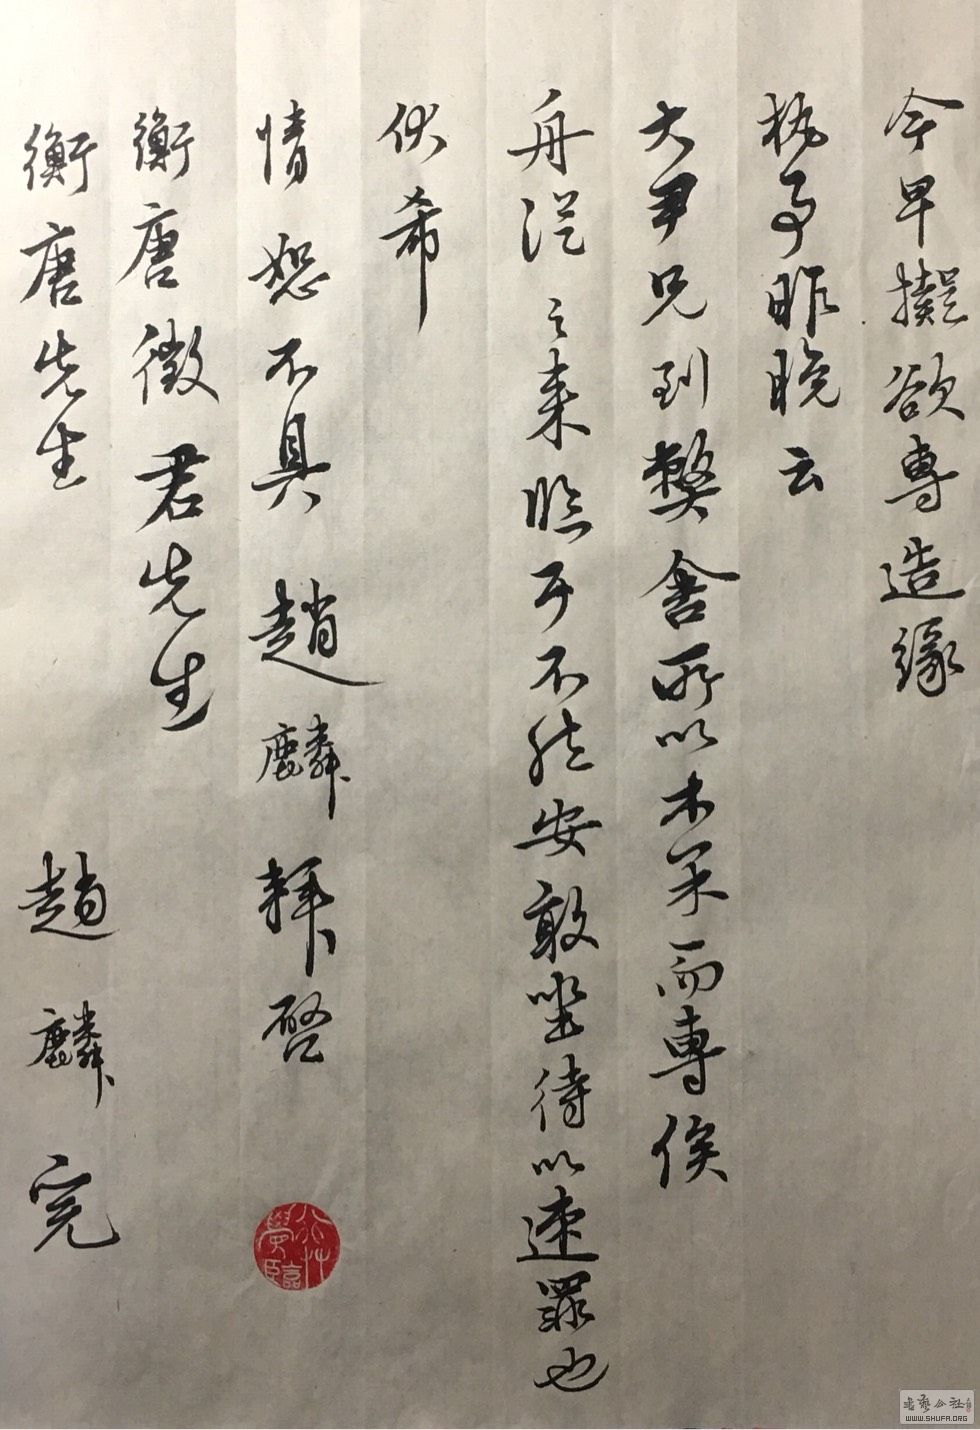 今早擬欲專造緣
執事昨晚云
大尹兄到弊舍所以未果而專俟
舟從之來臨耳不然安敢坐待以速罪也
伏希
情恕不具 趙麟拜啓
衡唐徵君先生
衡唐先生 趙麟 完
學臨
书艺公社
WWW.SHUFA.ORG